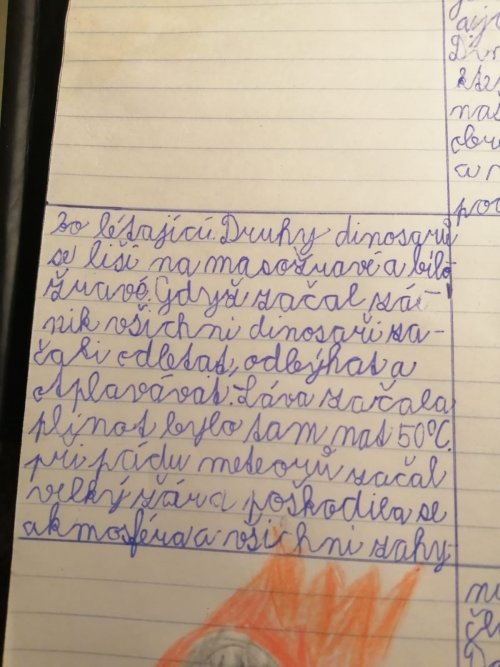 bo létající. Druhy dinosarů
se liší na masožravé a bílo
žravé. Gdyž začal zá-
nik všichni dinosaři za-
čali odletat, odbýhat a
otplavávat. Láva začala
plinot bylo tam nat 50°C.
při pádu meteorů začal
velký žár a poškodila se
akmosféra a všichni zahy